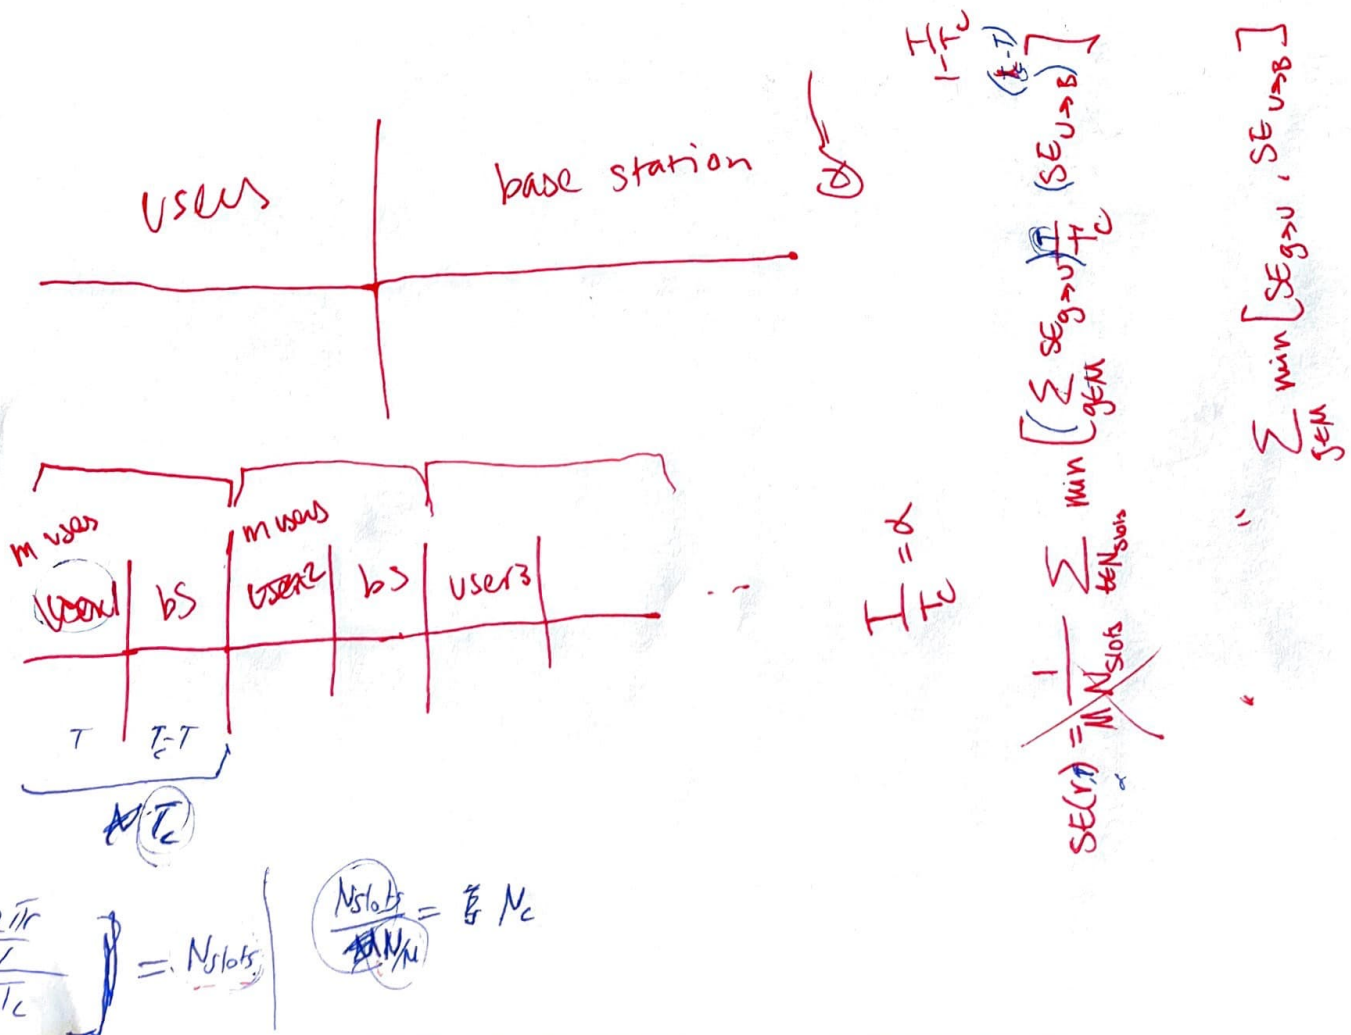 users
base station
α
m users
m users
user1
bS
user2
bS
user3
...
T
T_c-T
T_c
πr
T_c
= N_slots
N_slots / N/M = N_c
T/T_c = α
1-T/T_c
(T_c-T)
SE(r,T) = 1/(M N_slots) Σ_{t∈N_slots} min[(Σ_{g∈M} SE_{g→U}) T/T_c (SE_{U→B})]
" Σ_{g∈M} min[SE_{g→U}, SE_{U→B}]